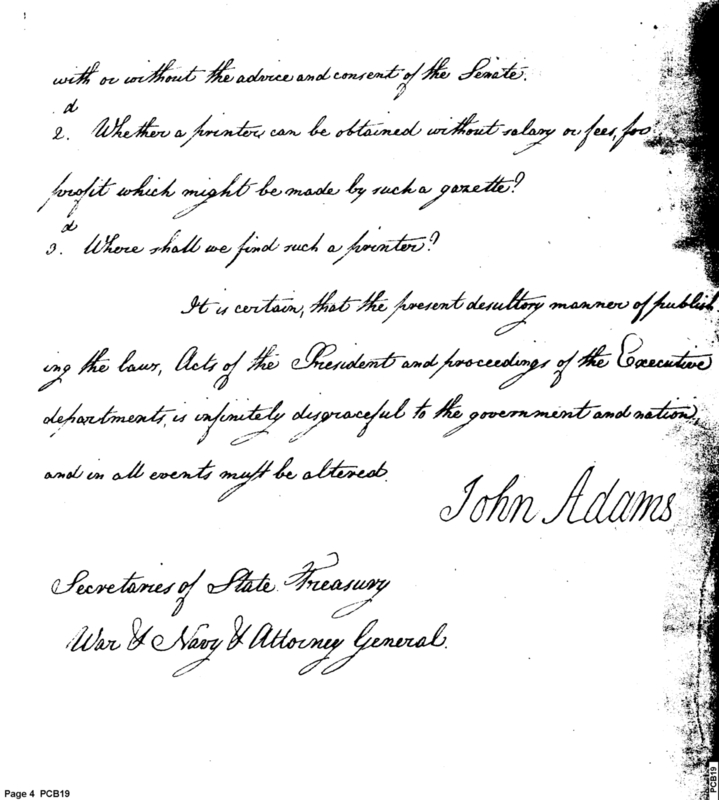 with or without the advice and consent of the Senate.
d
2. Whether a printer can be obtained without salary or fees, for
profit which might be made by such a gazette?
d
3. Where shall we find such a printer?
It is certain, that the present desultory manner of publish
ing the laws, Acts of the President and proceedings of the Executive
departments, is infinitely disgraceful to the government and nation,
and in all events must be altered.
John Adams
Secretaries of State Treasury
War & Navy & Attorney General.
Page 4 PCB19
PCB19